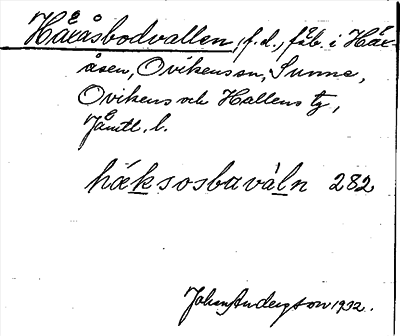 Häxåsbodvallen, (f.d.), fäb. i Häx-
åsen, Ovikens sn, Sunne,
Ovikens och Hallens tg,
Jämtl. l.
häksosbavàln 282
Johan Anderzson 1932.